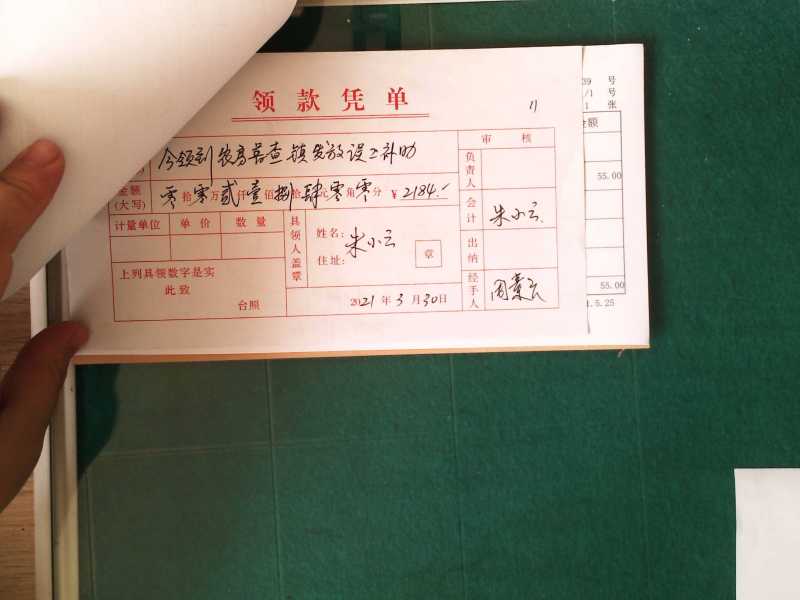 领款凭单
11
今领到农房普查镇发放误工补助
审核
负责人
金额(大写) 零拾零万贰仟壹佰捌拾肆元零角零分 ¥2184.-
会计 朱小云
计量单位 单价 数量
具领人盖章
姓名: 朱小云
住址:
章
出纳
上列具领数字是实
此致
台照
2021年3月30日
经手人
39 号
/1 号
1 张
金额
55.00
55.00
1.5.25